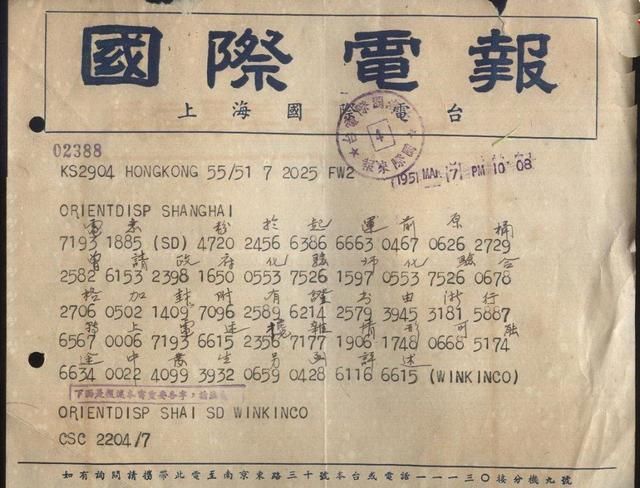 國際電報
上海國際電台
國際電台
4
02388
KS2904 HONGKONG 55/51 7 2025 FW2
1951 MAR (7) PM 10 08
ORIENTDISP SHANGHAI
電悉 粉於起運前原桶
7193 1885 (SD) 4720 2456 6386 6663 0467 0626 2729
曾請政府化驗師化驗合
2582 6153 2398 1650 0553 7526 1597 0553 7526 0678
格加 有證書由 行
2706 0502 1409 7096 2589 6214 2579 3945 3181 5887
上電述攙雜情形可
6567 0006 7193 6615 2356 7177 1906 1748 0668 5174
途中發生另函詳述
6634 0022 4099 3932 0659 0428 6116 6615 (WINKINCO)
下面是報還本電重要各字，請
ORIENTDISP SHAI SD WINKINCO
CSC 2204/7
如有詢問請攜帶此電至南京東路三十號本台或電話一一一三〇接分機九號